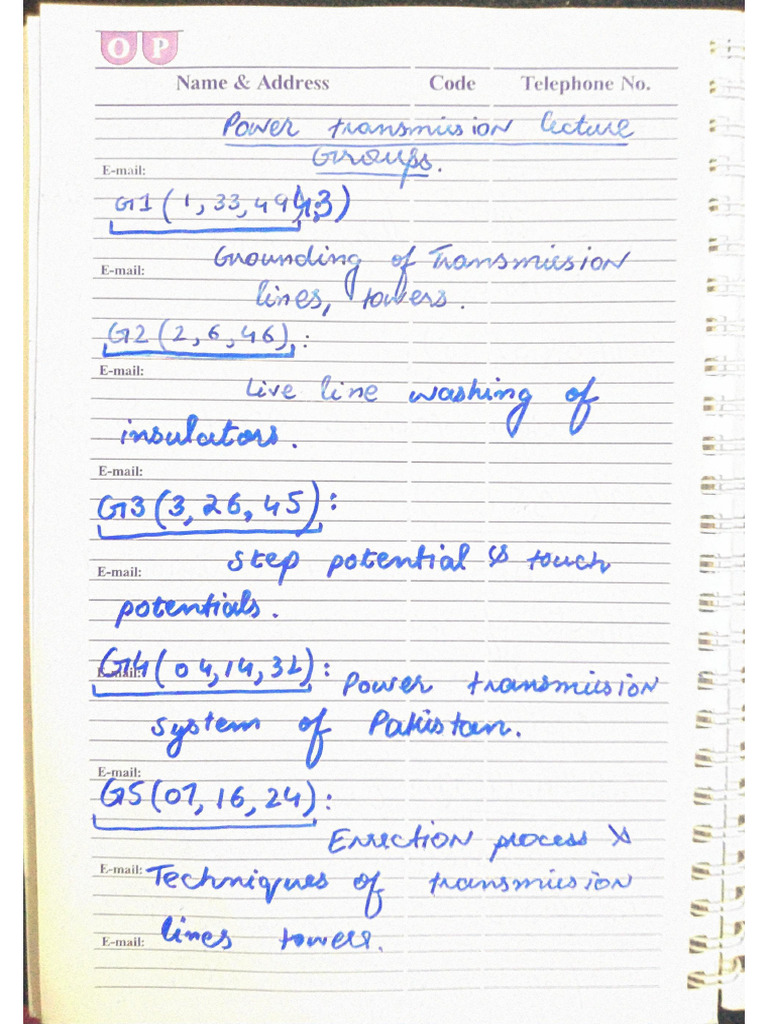 O P
Name & Address Code Telephone No.
Power transmission lecture
E-mail: Groups.
G1 (1, 33, 49, 43)
Grounding of Transmission
E-mail:
lines, towers.
G2 (2, 6, 46) :
E-mail:
Live line washing of
insulators.
E-mail:
G3 (3, 26, 45) :
Step potential & touch
E-mail:
potentials.
G4 (04, 14, 31) :
E-mail:
Power transmission
system of Pakistan.
E-mail:
G5 (07, 16, 24) :
Errection process &
E-mail: Techniques of transmission
E-mail: lines towers.